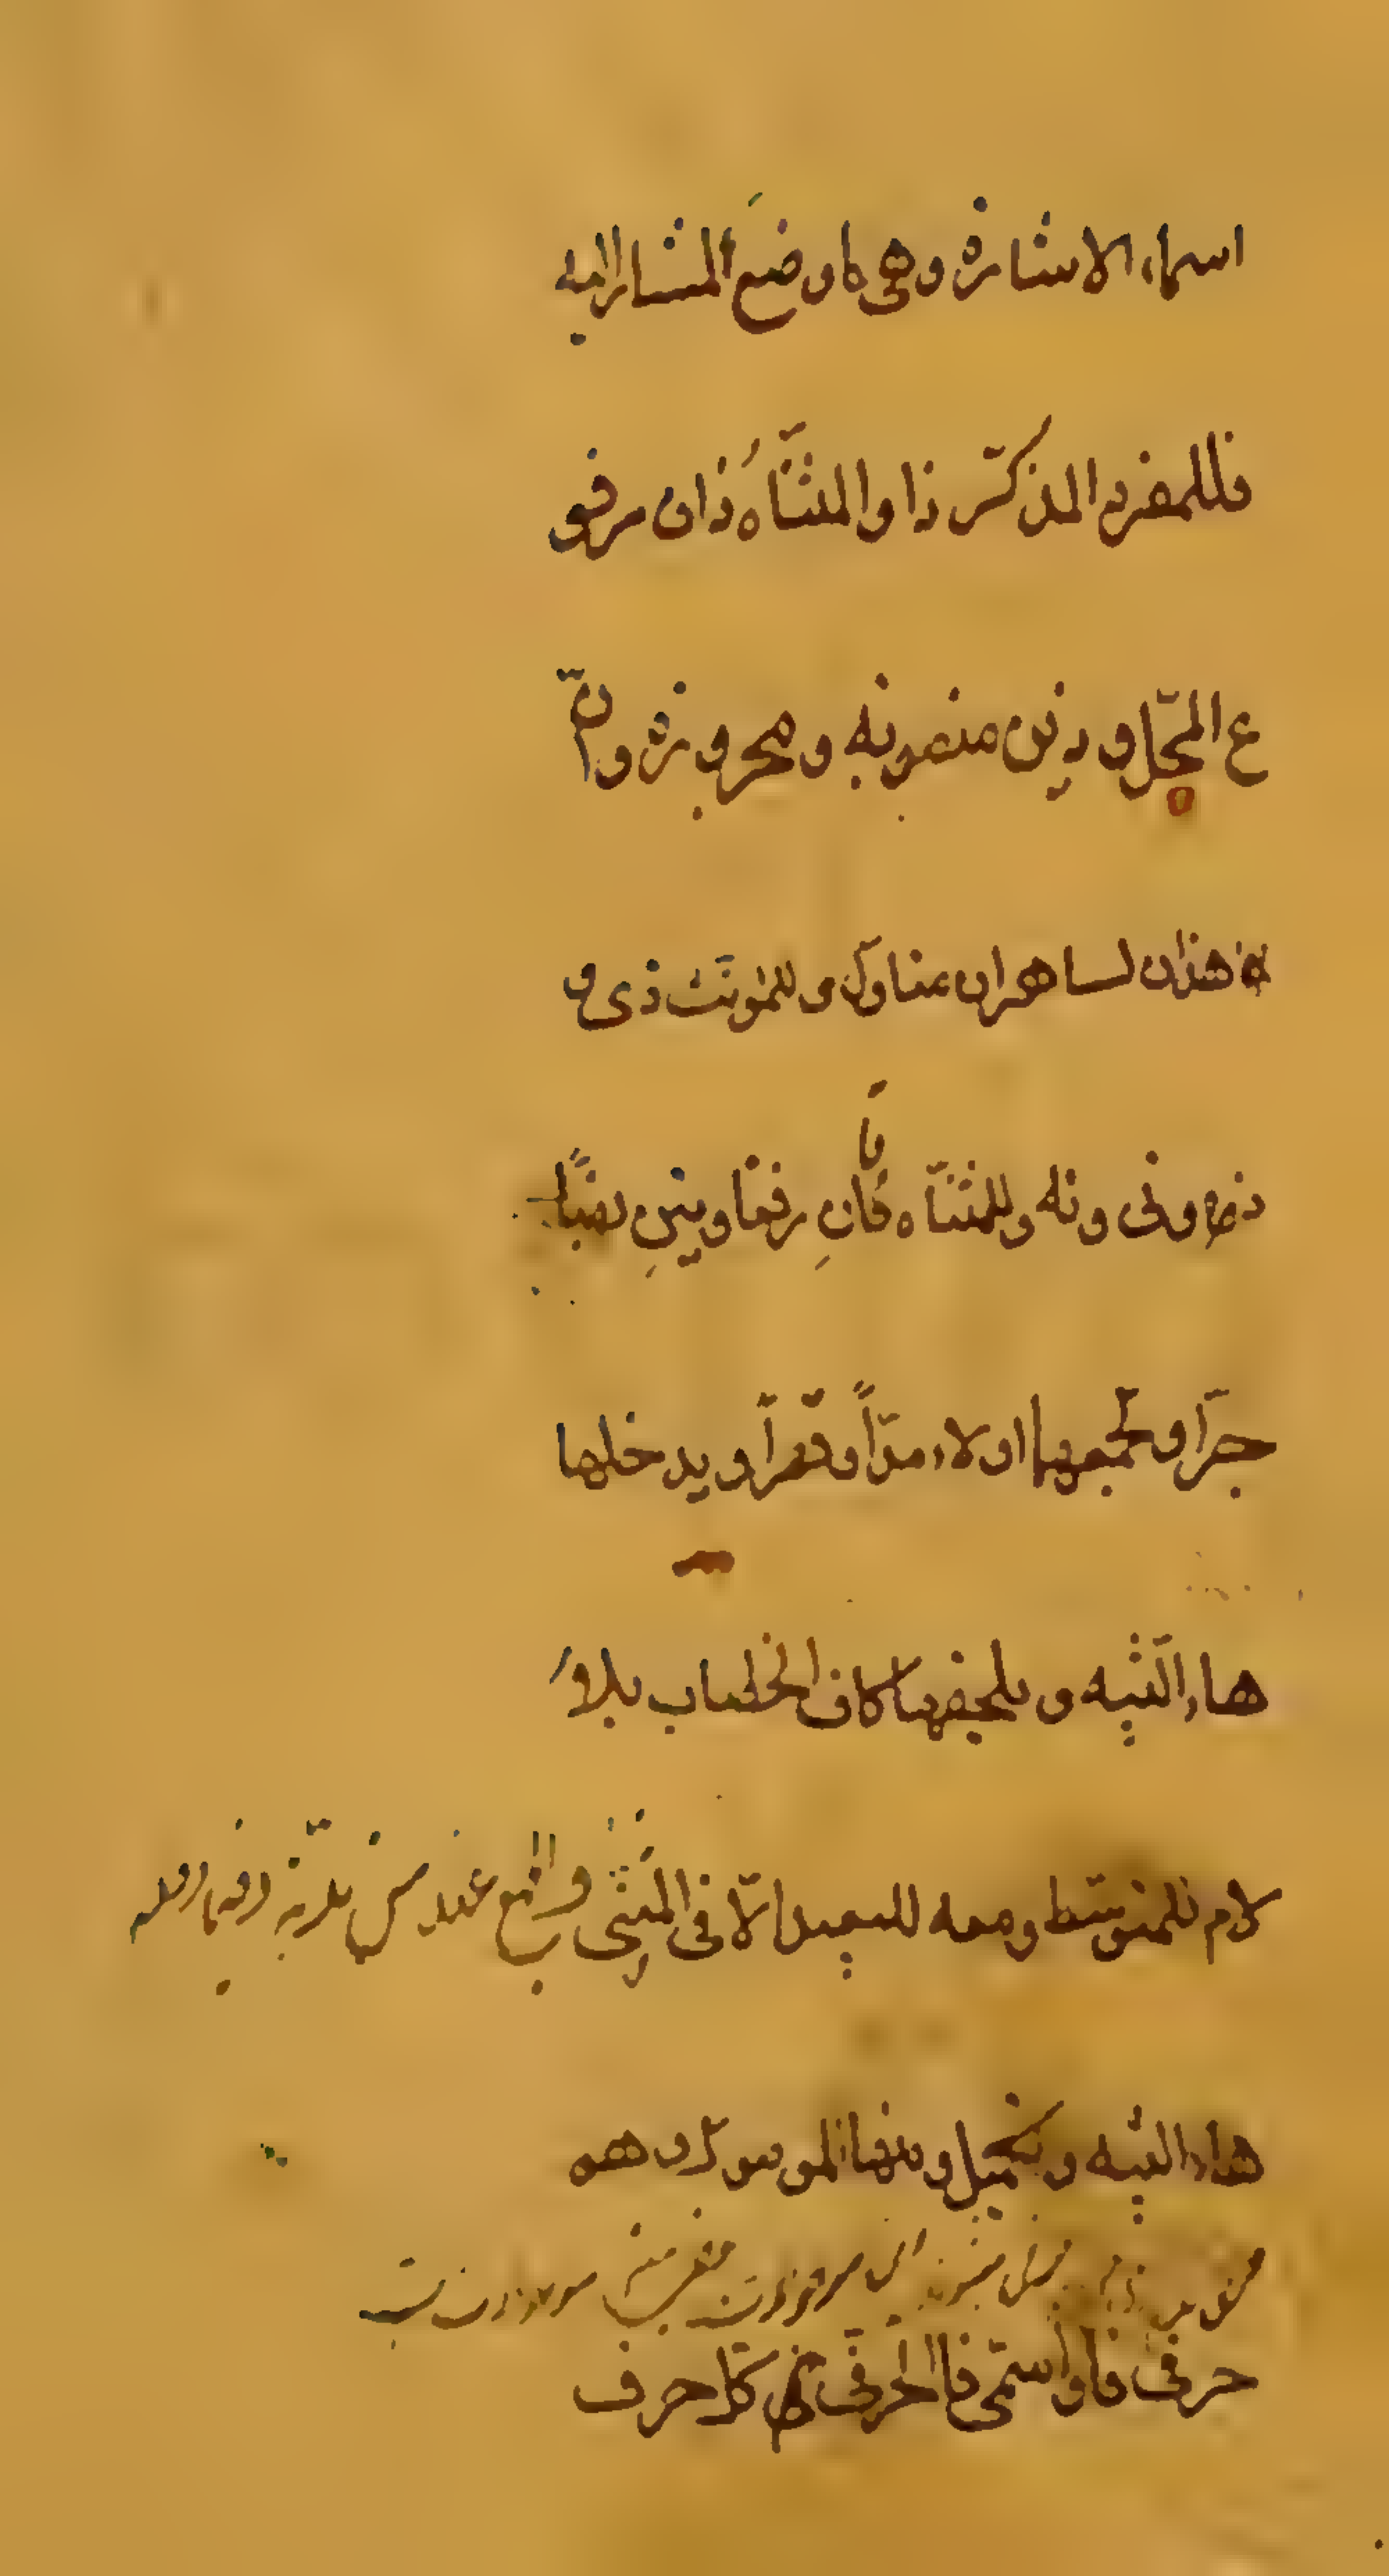 اسماء الاشارة وهی ما وضع المشار الیه
فللمفرد المذکّر ذا و المثنّاه ذان مرفو
ع المحّل و ذین منصوبه و مجروره و انّ
هذان لساحران متاوّل و للمؤنّث ذی و
ذه و تی و ته و للمثنّاه تانِ رفعًا و تینِ نصبًا
جرّا و لجمعهما اولاء مدّاً و قصرّاً و یدخلها
هاء التنبیه و یلحقها کاف الخطاب بلا
لام للمتوسّط و معه للبعید الّا فی المثنّی و الجمع عند من
هاء التنبیه و منها الموصول و هو
حرفیّ و اسمیّ فالحرفیّ کلّ حرف